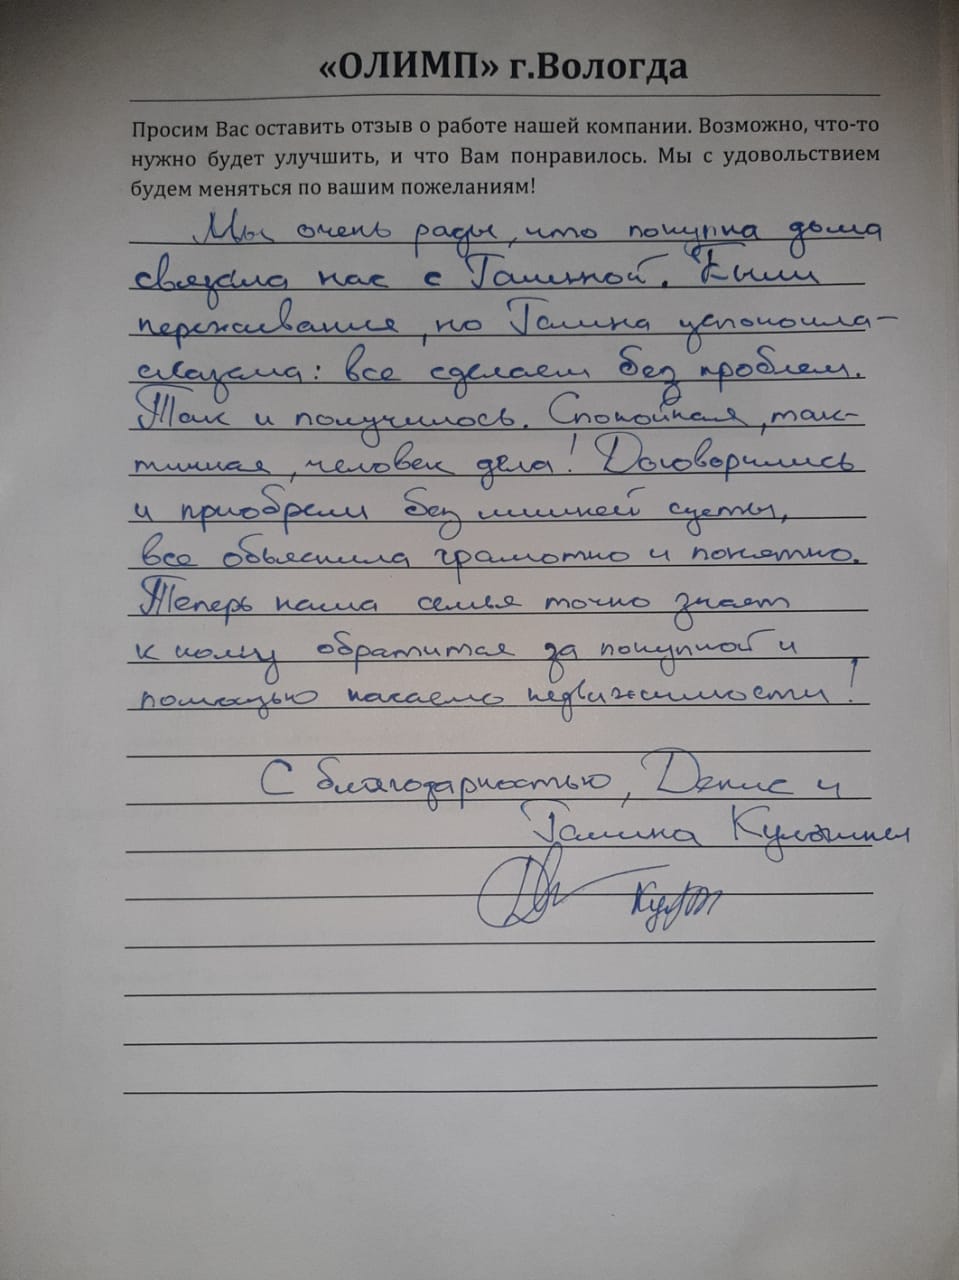 «ОЛИМП» г.Вологда
Просим Вас оставить отзыв о работе нашей компании. Возможно, что-то
нужно будет улучшить, и что Вам понравилось. Мы с удовольствием
будем меняться по вашим пожеланиям!
Мы очень рады, что покупка дома
связала нас с Галиной. Были
переживания, но Галина успокоила-
сказала: все сделаем без проблем.
Так и получилось. Спокойная, так-
тичная, человек дела! Договорились
и приобрели без лишней суеты,
все объяснила грамотно и понятно.
Теперь наша семья точно знает
к кому обратится за покупкой и
помощью касаемо недвижимости!
С благодарностью, Денис и
Галина